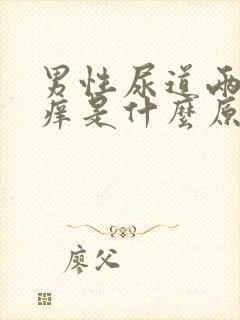 男性尿道两
痒是什麼原
廖父